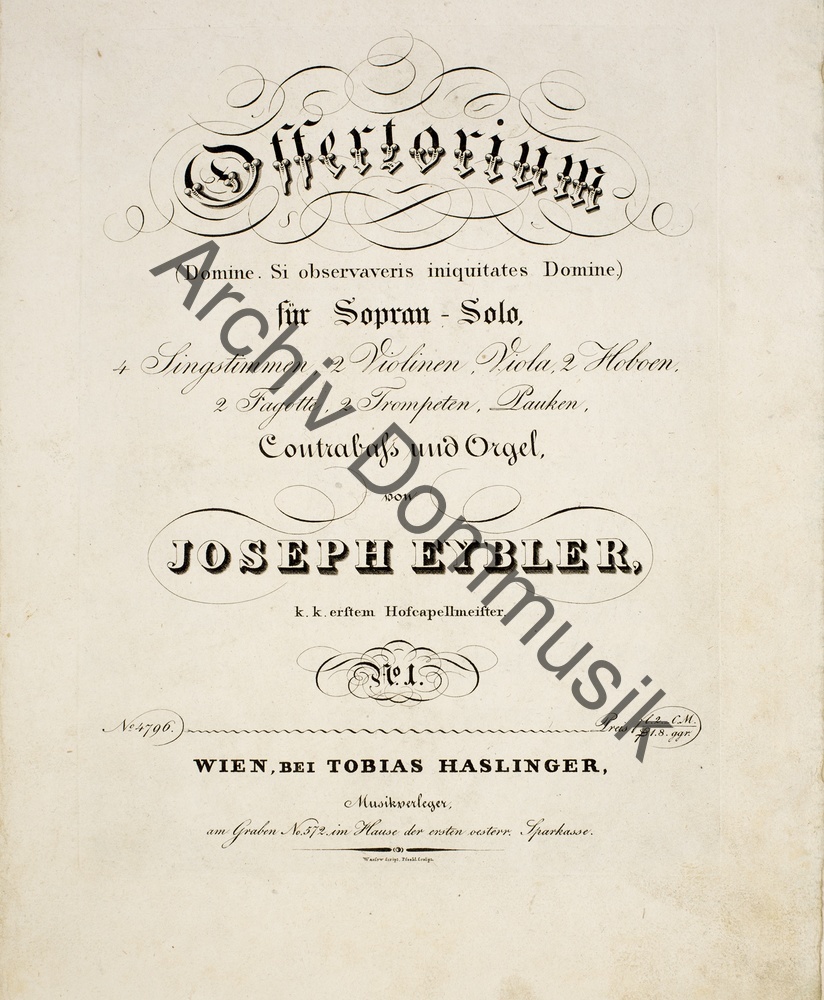 Offertorium
(Domine. Si observaveris iniquitates Domine,)
für Sopran - Solo,
4 Singstimmen, 2 Violinen, Viola, 2 Hoboen,
2 Fagotte, 2 Trompeten, Pauken,
Contrabaſs und Orgel,
von
JOSEPH EYBLER,
k. k. erſtem Hofcapellmeiſter.
No. 1.
No 4796.
Preis f 2_ C.M.
1.8. ggr.
WIEN, BEI TOBIAS HASLINGER,
Musikverleger,
am Graben No. 572. im Hause der ersten oesterr. Sparkasse.
Archiv Dommusik